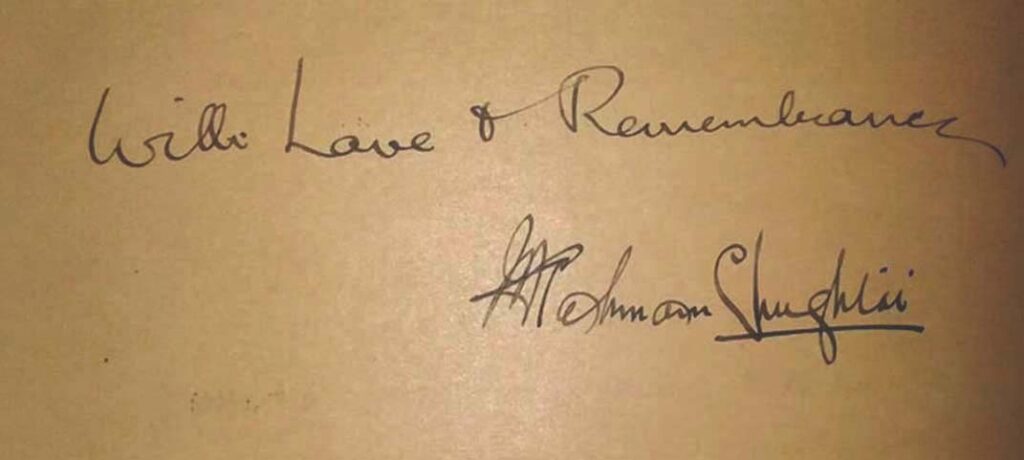 With Love & Remembrance
A Rahman Chughtai